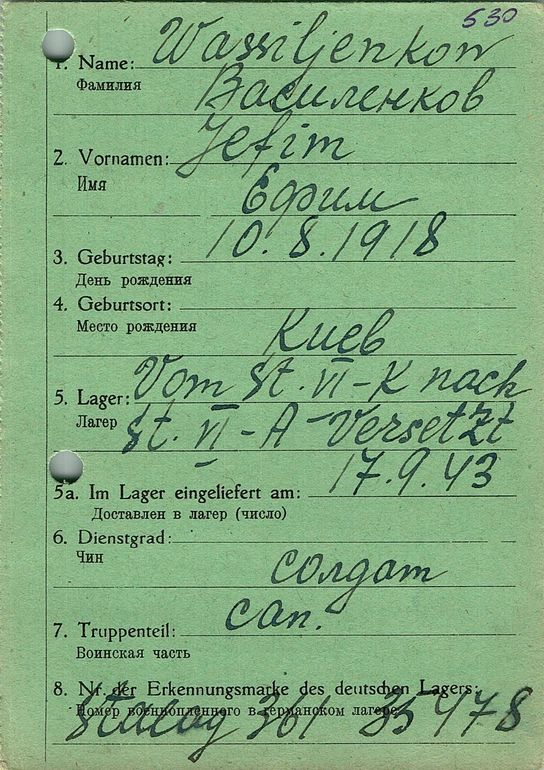 530
1. Name: Wassiljenkow
Фамилия Василенков
2. Vornamen: Jefim
Имя
Ефим
3. Geburtstag: 10.8.1918
День рождения
4. Geburtsort:
Место рождения
Киев
5. Lager: Vom St. VI-K nach
Лагерь St. VI-A Versetzt
17.9.43
5a. Im Lager eingeliefert am:
Доставлен в лагер (число)
6. Dienstgrad:
Чин
солдат
7. Truppenteil: сап.
Воинская часть
8. Nr. der Erkennungsmarke des deutschen Lagers:
Номер военнопленного в германском лагере:
Stalag 301 85478